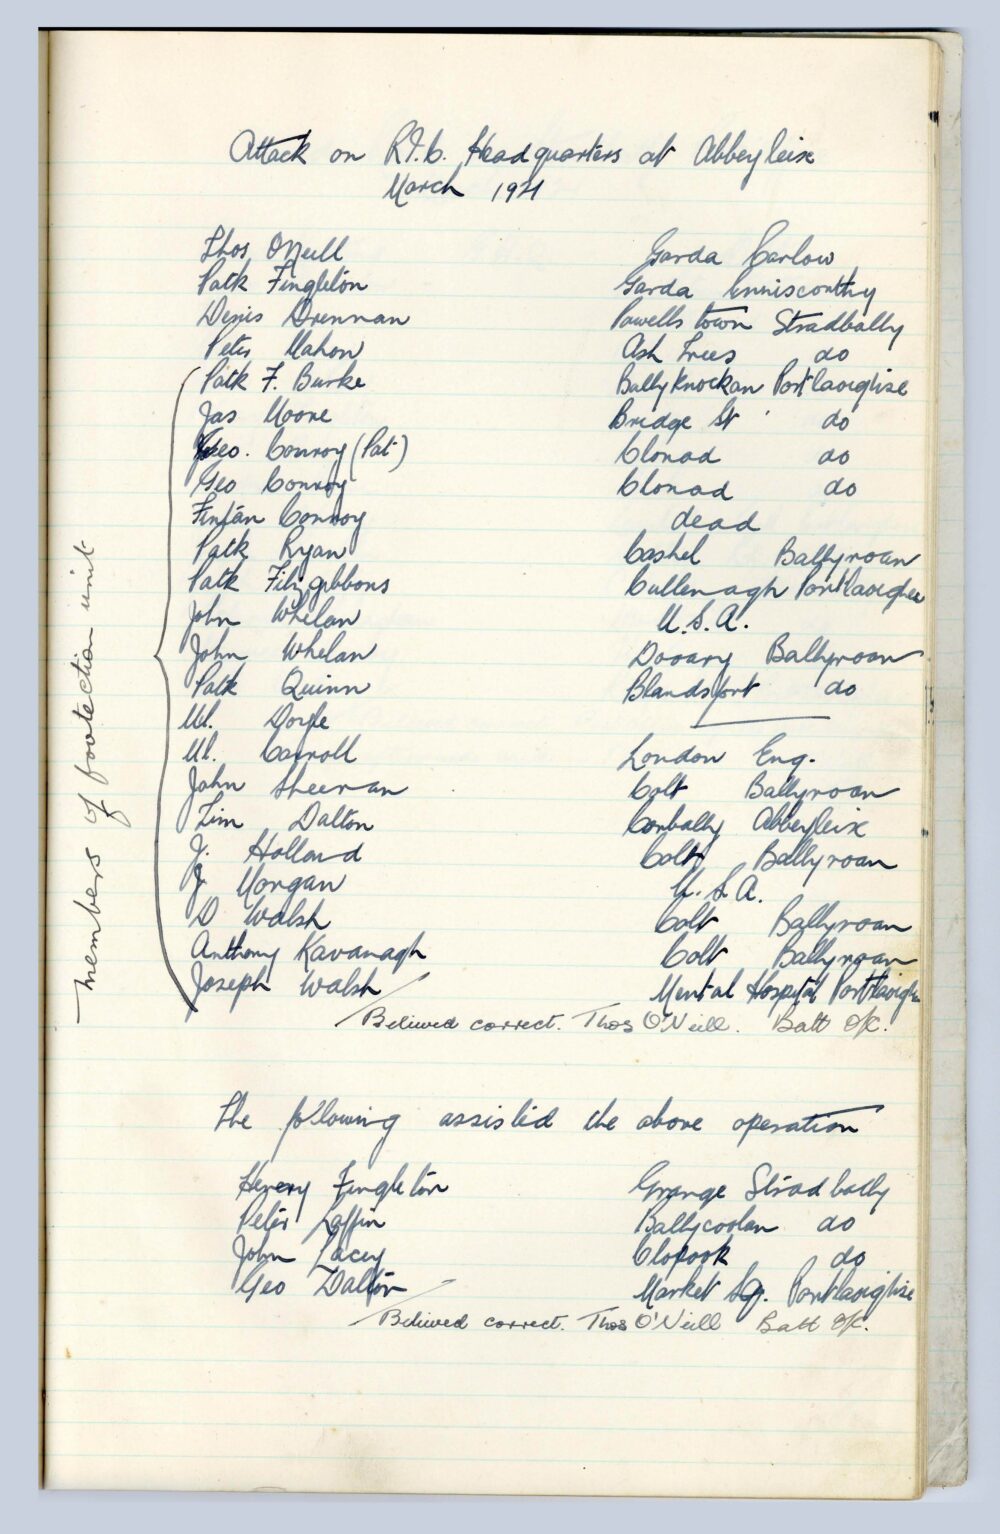 Attack on R.I.C. Headquarters at Abbeyleix
March 1921
Thos ONeill Garda Carlow
Patk Fingleton Garda Enniscorthy
Denis Drennan Powells town Stradbally
Peter Mahon Ash Trees do
Patk F. Burke Ballyknockan Portlaoighise
Jas Moore Bridge St do
Geo. Conroy (Pat) Clonad do
Geo Conroy Clonad do
Fintan Conroy dead
Patk Ryan Cashel Ballyroan
Patk Fitzgibbons Cullenagh Portlaoighise
John Whelan U.S.A.
John Whelan Dooary Ballyroan
Patk Quinn Blandsfort do
Ml. Doyle
Ml. Carroll London Eng.
John Sheeran Colt Ballyroan
Tim Dalton Corbally Abbeyleix
J. Holland Colt Ballyroan
J. Morgan U.S.A.
D Walsh Colt Ballyroan
Anthony Kavanagh Colt Ballyroan
Joseph Walsh Mental Hospital Portlaoighise
members of protection unit
Believed correct. Thos O'Neill. Batt O/C.
The following assisted the above operation
Henery Fingleton Grange Stradbally
Peter Laffin Ballycoolan do
John Lacey Clopook do
Geo Dalton Market Sq. Portlaoighise
Believed correct. Thos O'Neill Batt O/C.